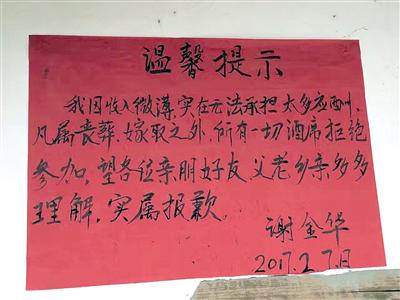 温馨提示
我因收入微薄,实在无法承担太多应酬,
凡属丧葬、嫁取之外,所有一切酒席拒绝
参加,望各位亲朋好友父老乡亲多多
理解,实属报歉。
谢金华
2017.2.7.日